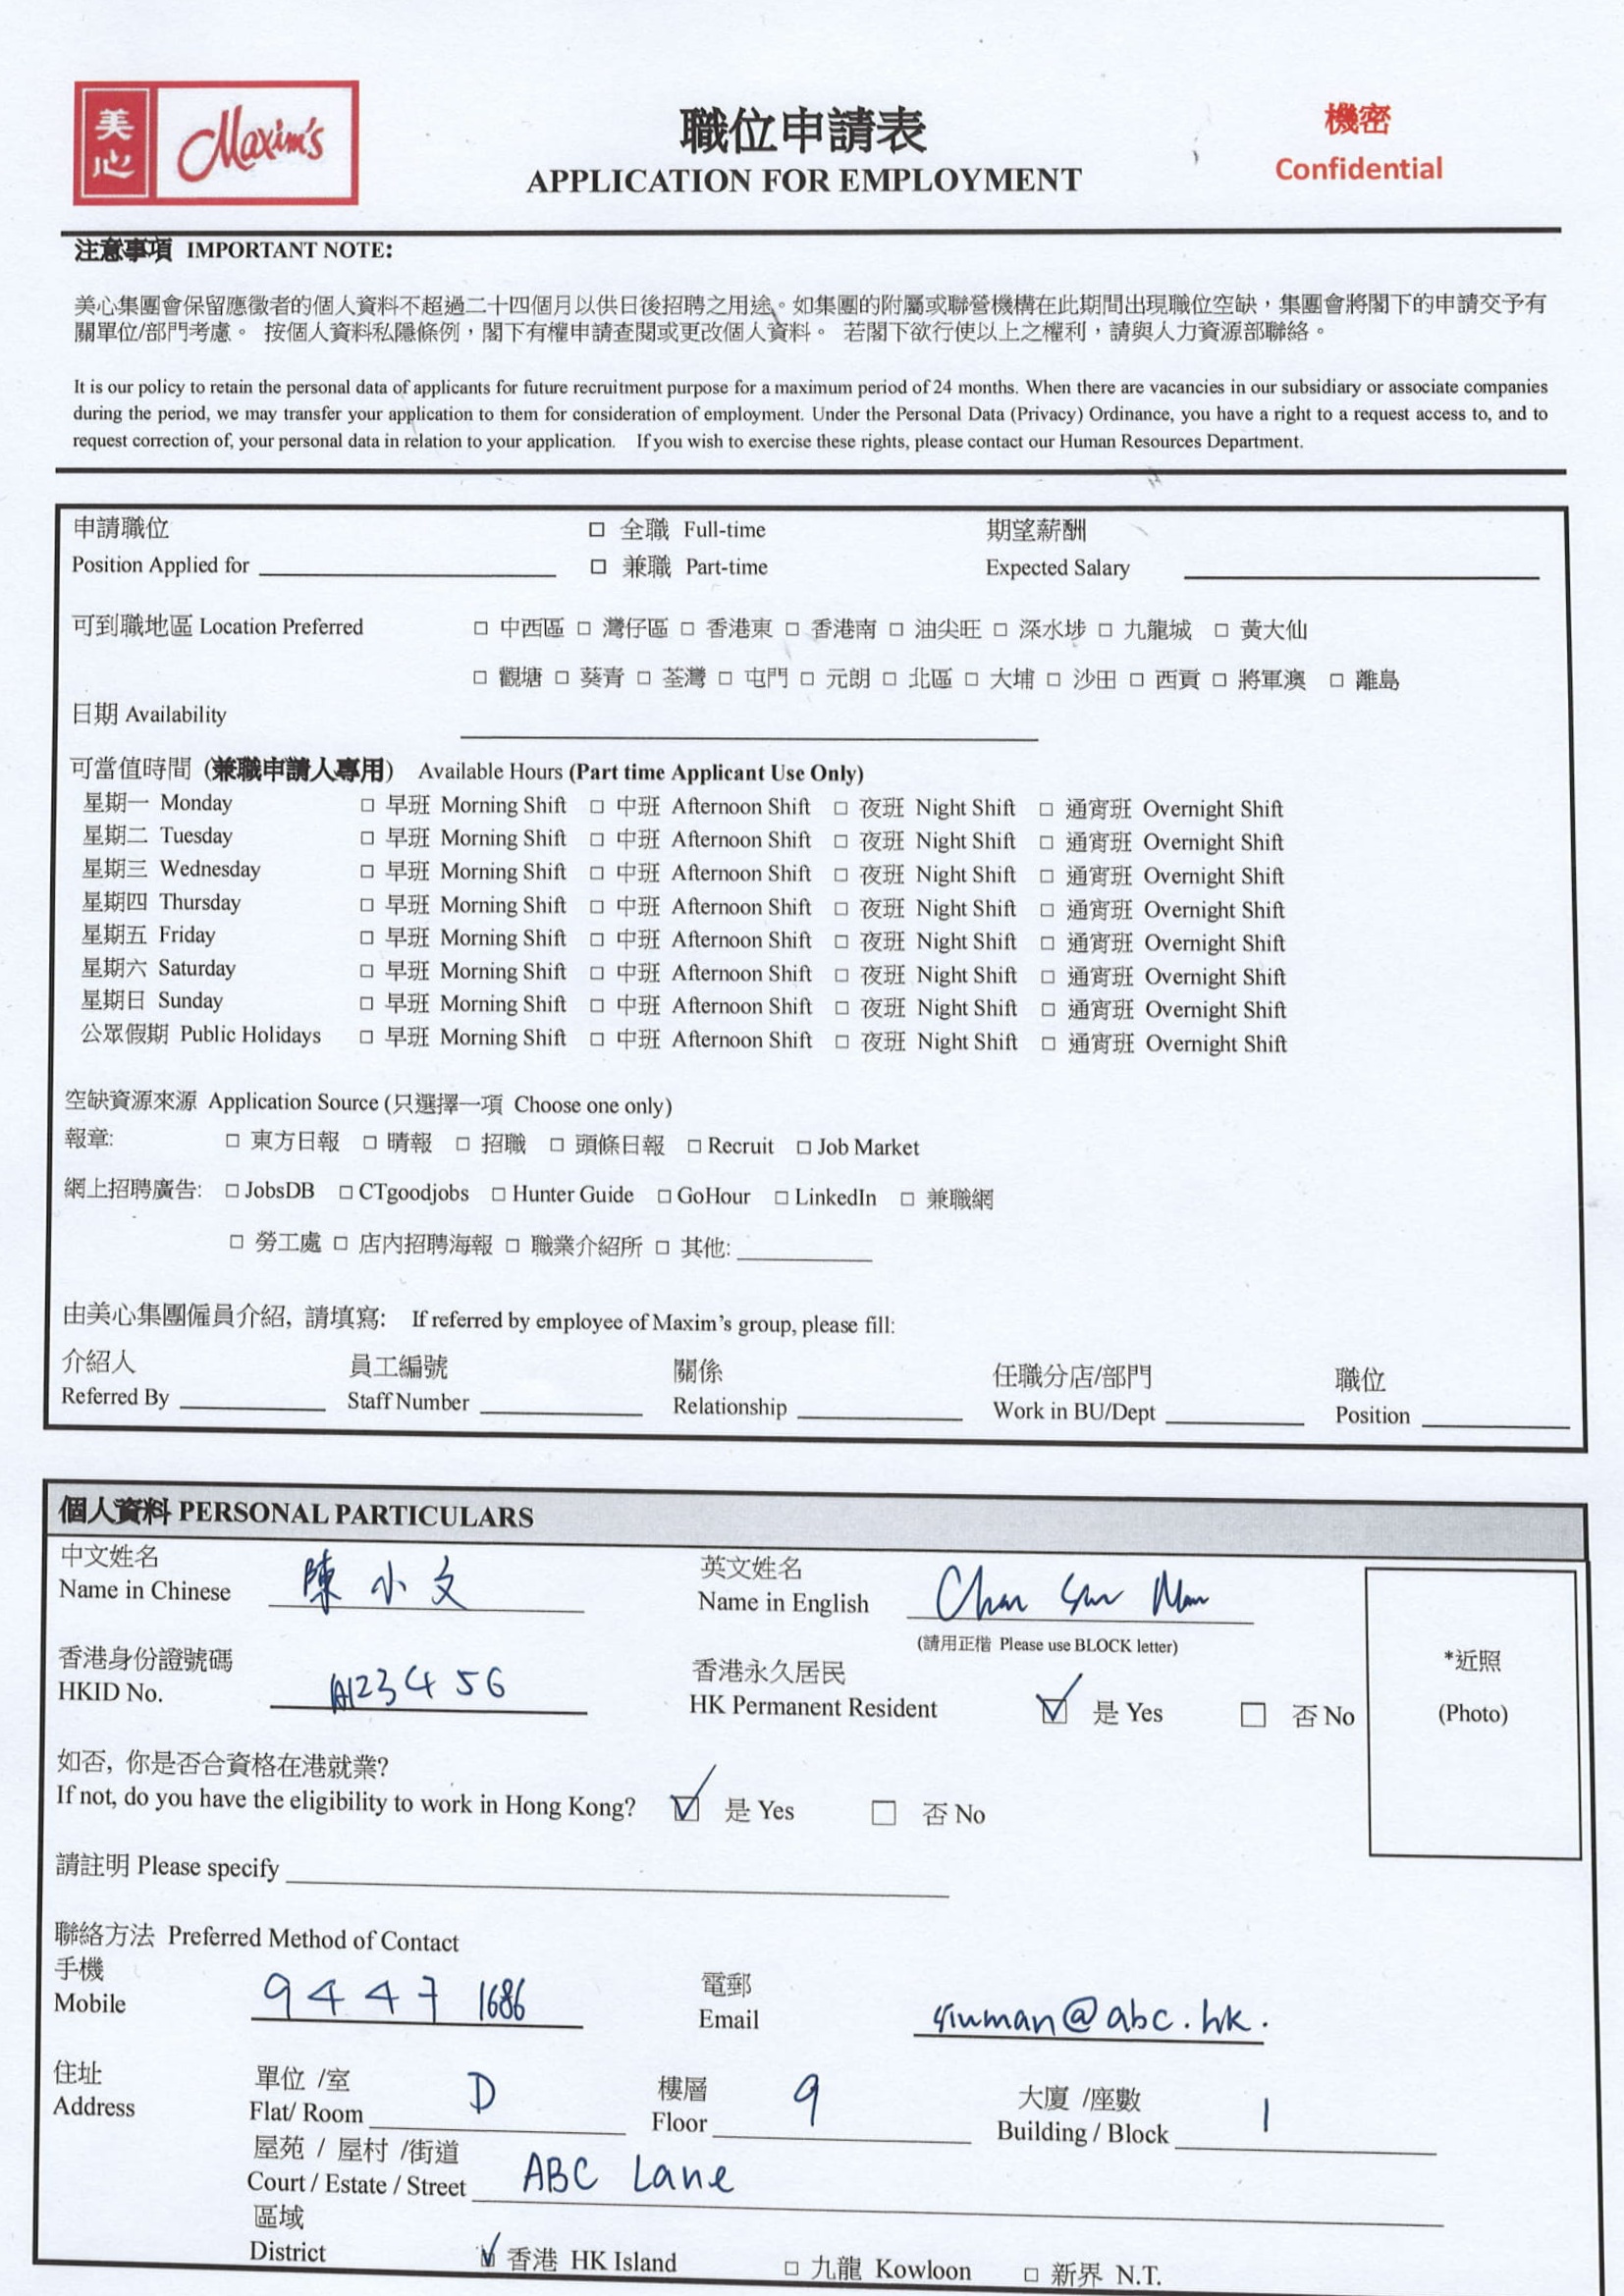 美心 Maxim's
職位申請表
APPLICATION FOR EMPLOYMENT
機密
Confidential
注意事項 IMPORTANT NOTE:
美心集團會保留應徵者的個人資料不超過二十四個月以供日後招聘之用途。如集團的附屬或聯營機構在此期間出現職位空缺，集團會將閣下的申請交予有
關單位/部門考慮。 按個人資料私隱條例，閣下有權申請查閱或更改個人資料。 若閣下欲行使以上之權利，請與人力資源部聯絡。
It is our policy to retain the personal data of applicants for future recruitment purpose for a maximum period of 24 months. When there are vacancies in our subsidiary or associate companies
during the period, we may transfer your application to them for consideration of employment. Under the Personal Data (Privacy) Ordinance, you have a right to a request access to, and to
request correction of, your personal data in relation to your application. If you wish to exercise these rights, please contact our Human Resources Department.
申請職位 □ 全職 Full-time 期望薪酬
Position Applied for □ 兼職 Part-time Expected Salary
可到職地區 Location Preferred □ 中西區 □ 灣仔區 □ 香港東 □ 香港南 □ 油尖旺 □ 深水埗 □ 九龍城 □ 黃大仙
□ 觀塘 □ 葵青 □ 荃灣 □ 屯門 □ 元朗 □ 北區 □ 大埔 □ 沙田 □ 西貢 □ 將軍澳 □ 離島
日期 Availability
可當值時間 (兼職申請人專用) Available Hours (Part time Applicant Use Only)
星期一 Monday □ 早班 Morning Shift □ 中班 Afternoon Shift □ 夜班 Night Shift □ 通宵班 Overnight Shift
星期二 Tuesday □ 早班 Morning Shift □ 中班 Afternoon Shift □ 夜班 Night Shift □ 通宵班 Overnight Shift
星期三 Wednesday □ 早班 Morning Shift □ 中班 Afternoon Shift □ 夜班 Night Shift □ 通宵班 Overnight Shift
星期四 Thursday □ 早班 Morning Shift □ 中班 Afternoon Shift □ 夜班 Night Shift □ 通宵班 Overnight Shift
星期五 Friday □ 早班 Morning Shift □ 中班 Afternoon Shift □ 夜班 Night Shift □ 通宵班 Overnight Shift
星期六 Saturday □ 早班 Morning Shift □ 中班 Afternoon Shift □ 夜班 Night Shift □ 通宵班 Overnight Shift
星期日 Sunday □ 早班 Morning Shift □ 中班 Afternoon Shift □ 夜班 Night Shift □ 通宵班 Overnight Shift
公眾假期 Public Holidays □ 早班 Morning Shift □ 中班 Afternoon Shift □ 夜班 Night Shift □ 通宵班 Overnight Shift
空缺資源來源 Application Source (只選擇一項 Choose one only)
報章: □ 東方日報 □ 晴報 □ 招職 □ 頭條日報 □ Recruit □ Job Market
網上招聘廣告: □ JobsDB □ CTgoodjobs □ Hunter Guide □ GoHour □ LinkedIn □ 兼職網
□ 勞工處 □ 店內招聘海報 □ 職業介紹所 □ 其他:
由美心集團僱員介紹, 請填寫: If referred by employee of Maxim's group, please fill:
介紹人 員工編號 關係 任職分店/部門 職位
Referred By Staff Number Relationship Work in BU/Dept Position
個人資料 PERSONAL PARTICULARS
中文姓名 英文姓名
Name in Chinese 陳小文 Name in English Chan Siu Man
(請用正楷 Please use BLOCK letter)
香港身份證號碼 香港永久居民
HKID No. A123456 HK Permanent Resident ☑ 是 Yes □ 否 No
*近照
(Photo)
如否, 你是否合資格在港就業?
If not, do you have the eligibility to work in Hong Kong? ☑ 是 Yes □ 否 No
請註明 Please specify
聯絡方法 Preferred Method of Contact
手機 電郵
Mobile 9447 1686 Email siuman@abc.hk.
住址 單位 /室 樓層 大廈 /座數
Address Flat/ Room D Floor 9 Building / Block 1
屋苑 / 屋村 /街道
Court / Estate / Street ABC Lane
區域
District ☑ 香港 HK Island □ 九龍 Kowloon □ 新界 N.T.